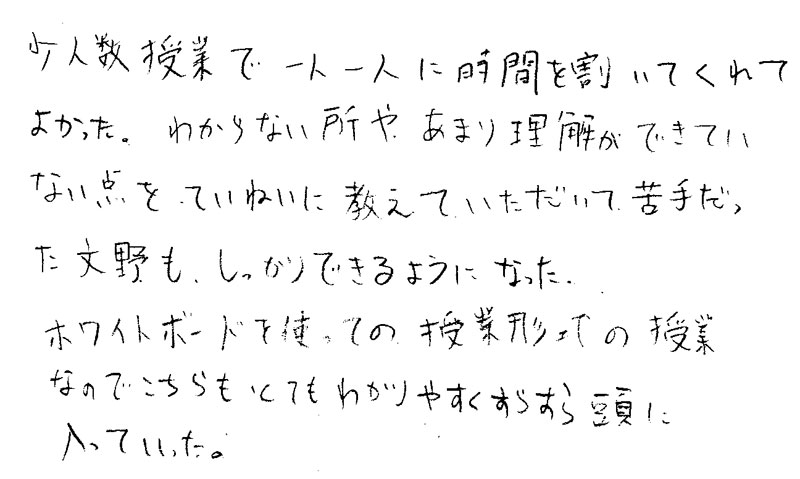 少人数授業で一人一人に時間を割いてくれて
よかった。わからない所や、あまり理解ができてい
ない点を、ていねいに教えていただいて苦手だっ
た文野も、しっかりできるようになった。
ホワイトボードを使っての授業形式の授業
なのでこちらもとてもわかりやすくすらすら頭に
入っていった。